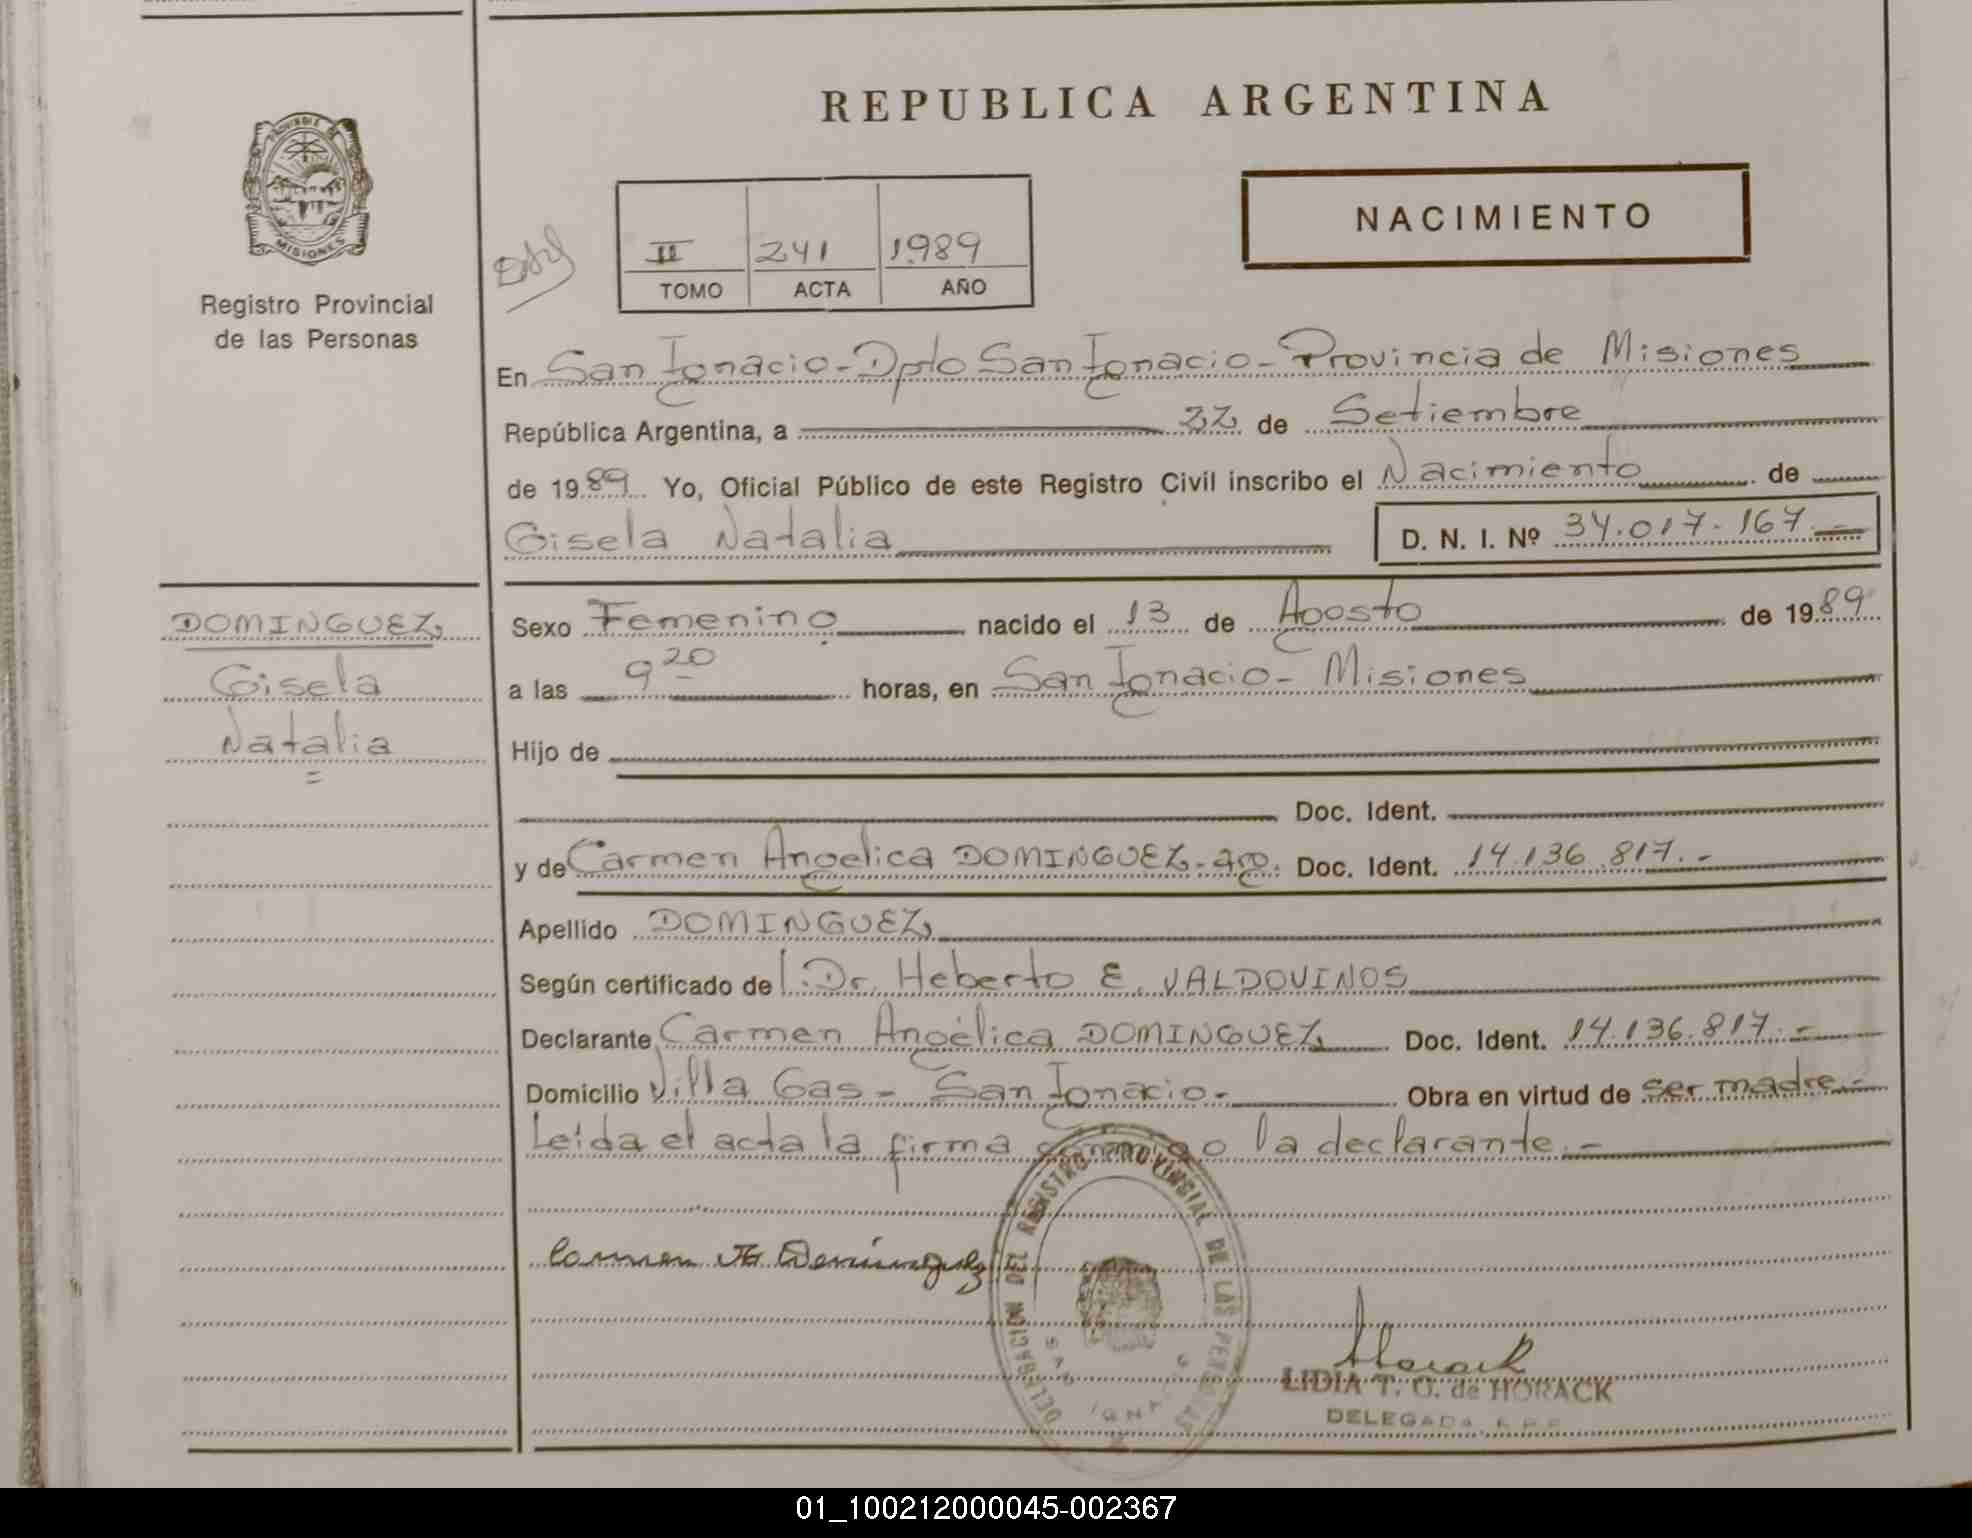 REPUBLICA ARGENTINA
PROVINCIA DE
MISIONES
Registro Provincial
de las Personas
NACIMIENTO
II 241 1989
TOMO ACTA AÑO
En San Ignacio - Dpto San Ignacio - Provincia de Misiones
República Argentina, a 22 de Setiembre
de 1989 Yo, Oficial Público de este Registro Civil inscribo el Nacimiento de
Gisela Natalia D. N. I. Nº 34.017.167.-
DOMINGUEZ,
Gisela
Natalia
=
Sexo Femenino nacido el 13 de Agosto de 1989
a las 9 20 horas, en San Ignacio - Misiones
Hijo de
Doc. Ident.
y de Carmen Angelica DOMINGUEZ - arg. Doc. Ident. 14.136.817.-
Apellido DOMINGUEZ,
Según certificado de l. Dr. Heberto E. VALDOVINOS
Declarante Carmen Angélica DOMINGUEZ Doc. Ident. 14.136.817.-
Domicilio Villa Gas - San Ignacio - Obra en virtud de ser madre.-
Leída el acta la firma conmigo la declarante.-
Carmen A. Dominguez
DELEGACION DEL REGISTRO PROVINCIAL DE LAS PERSONAS
SAN IGNACIO
Horack
LIDIA T. O. de HORACK
DELEGADA R.P.P.
01_100212000045-002367